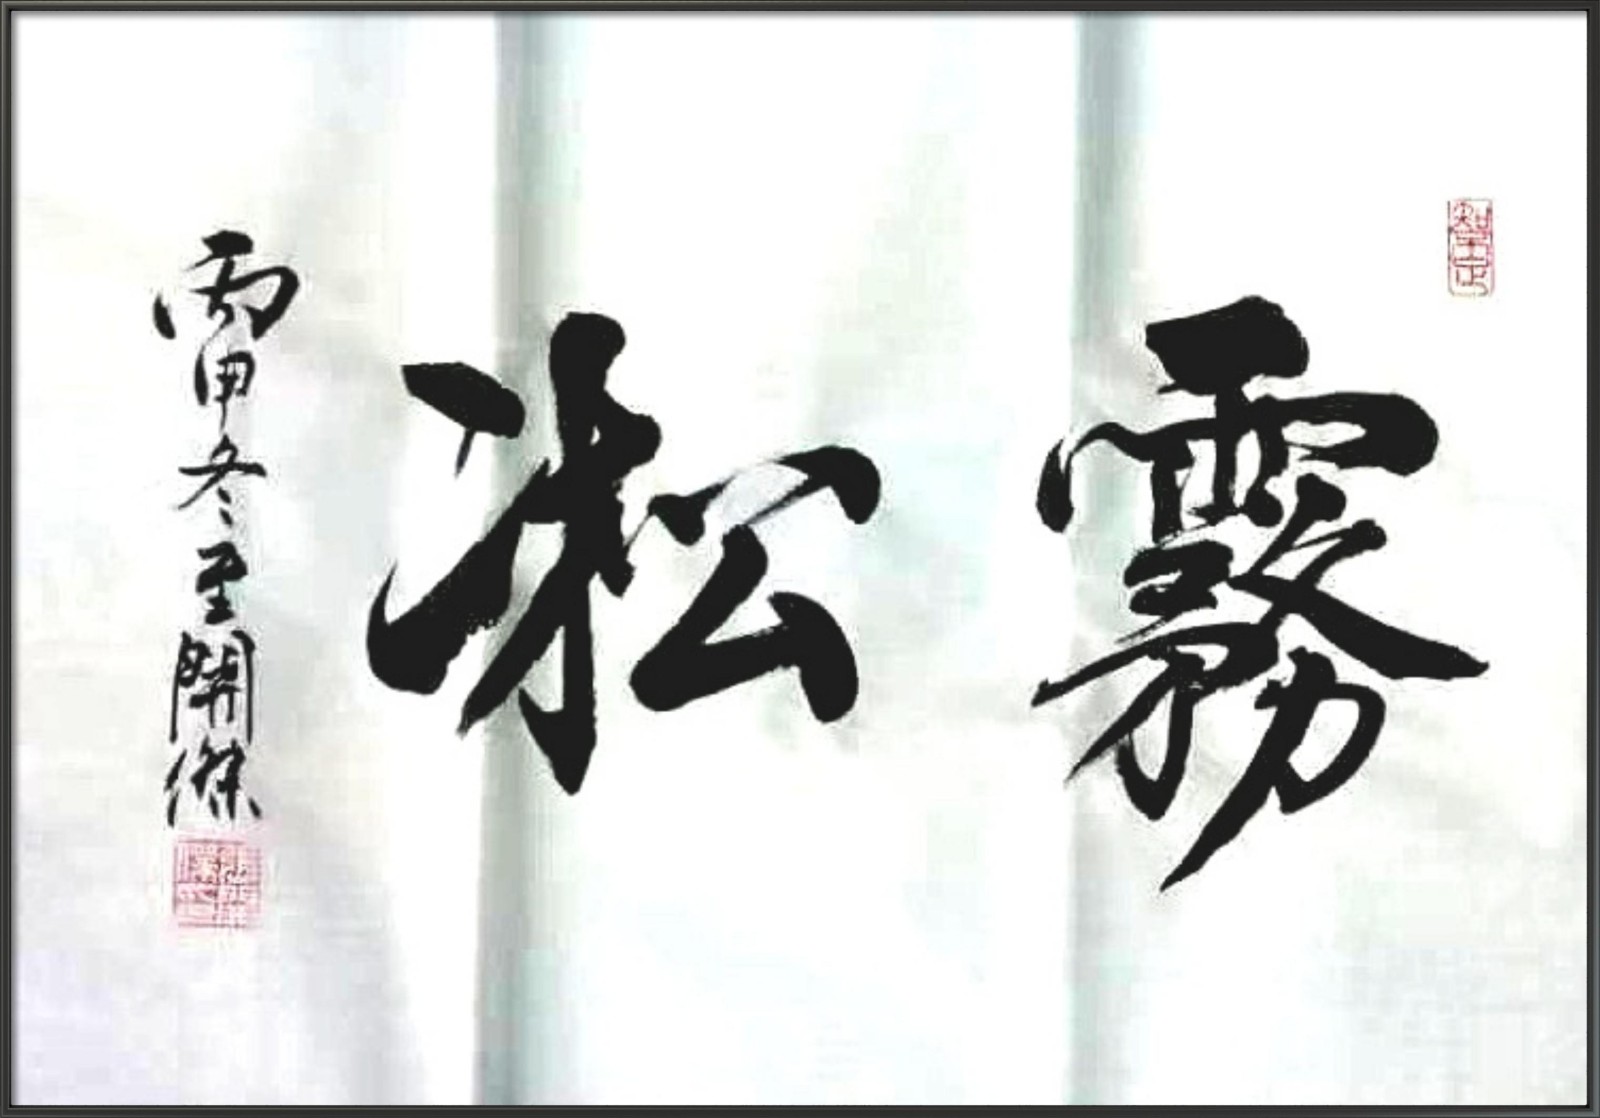 霧凇
丙申冬至開傑